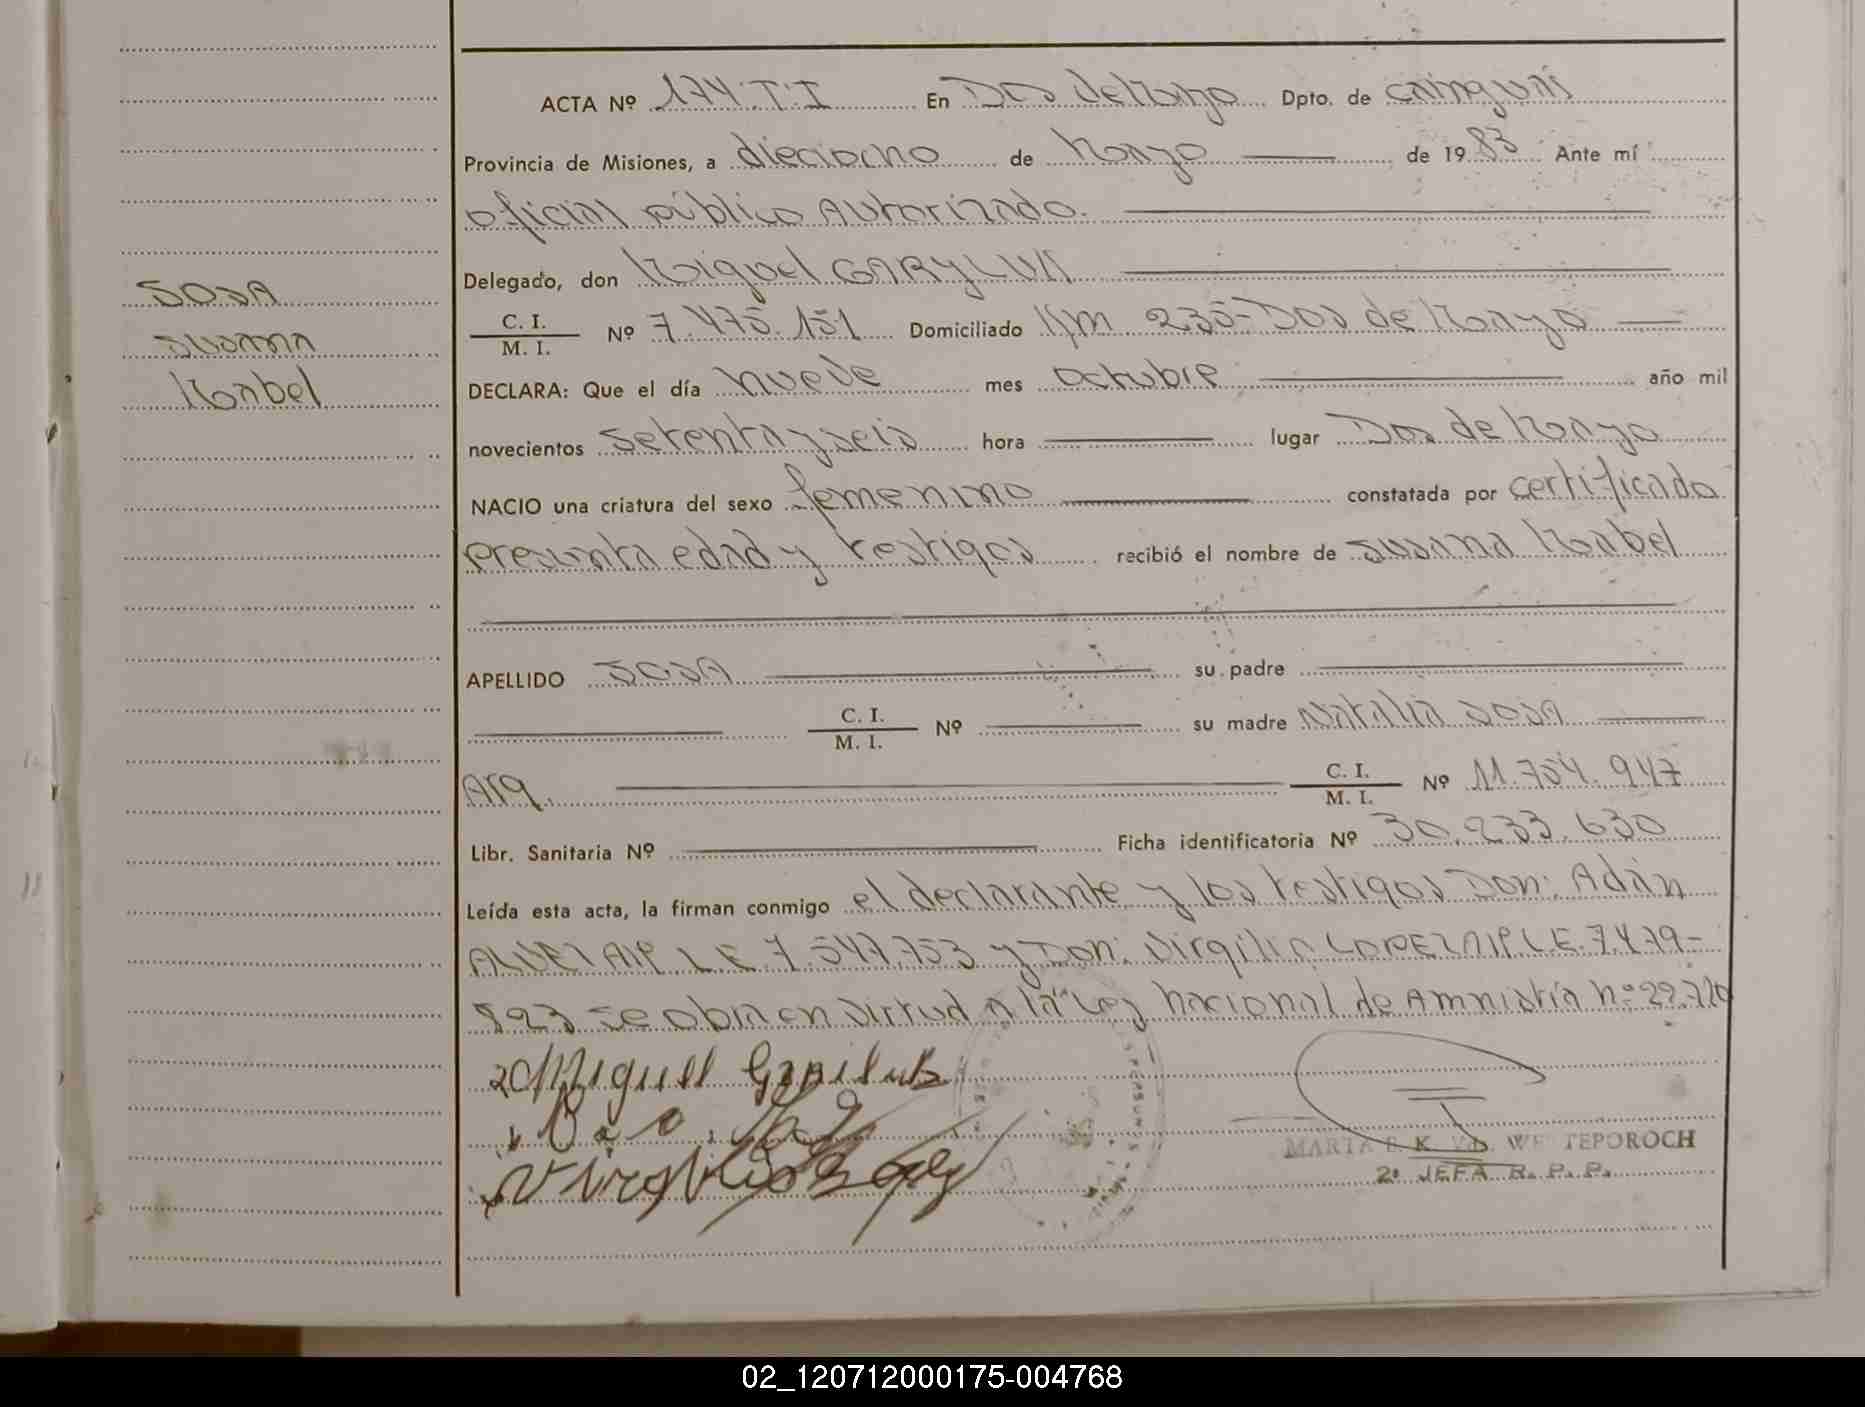 ACTA Nº 174.T.I En Dos de Mayo Dpto. de Cainguás
Provincia de Misiones, a dieciocho de Mayo de 1983 Ante mí
oficial público Autorizado.
Delegado, don Miguel
SOSA
Susana
Mabel
C. I.
M. I. Nº 7.475.151 Domiciliado Km 235-Dos de Mayo
DECLARA: Que el día nueve mes octubre año mil
novecientos setenta y seis hora lugar Dos de Mayo
NACIO una criatura del sexo femenino constatada por certificado
presunta edad y testigos recibió el nombre de Susana Mabel
APELLIDO SOSA su padre
C. I.
M. I. Nº su madre Natalia SOSA
Arg. C. I.
M. I. Nº 11.754.947
Libr. Sanitaria Nº Ficha identificatoria Nº 30.233.630
Leída esta acta, la firman conmigo el declarante y los testigos Don: Adán
L.E. 7.547.753 y Don: Virgilio LOPEZ L.E. 7.479-
se en virtud a la "Ley Nacional de Amnistía nº 22.
Miguel
Virgilio
MARTA E. K. TEPOROCH
2º JEFA R. P. P.
02_120712000175-004768